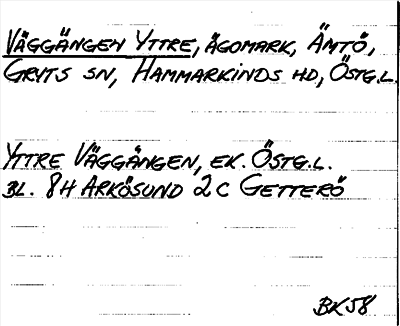 VÄGGÄNGEN YTTRE, ÄGOMARK, ÄMTÖ,
GRYTS SN, HAMMARKINDS HD, ÖSTG.L.
YTTRE VÄGGÄNGEN, EK. ÖSTG.L.
BL. 8H ARKÖSUND 2C GETTERÖ
BK58